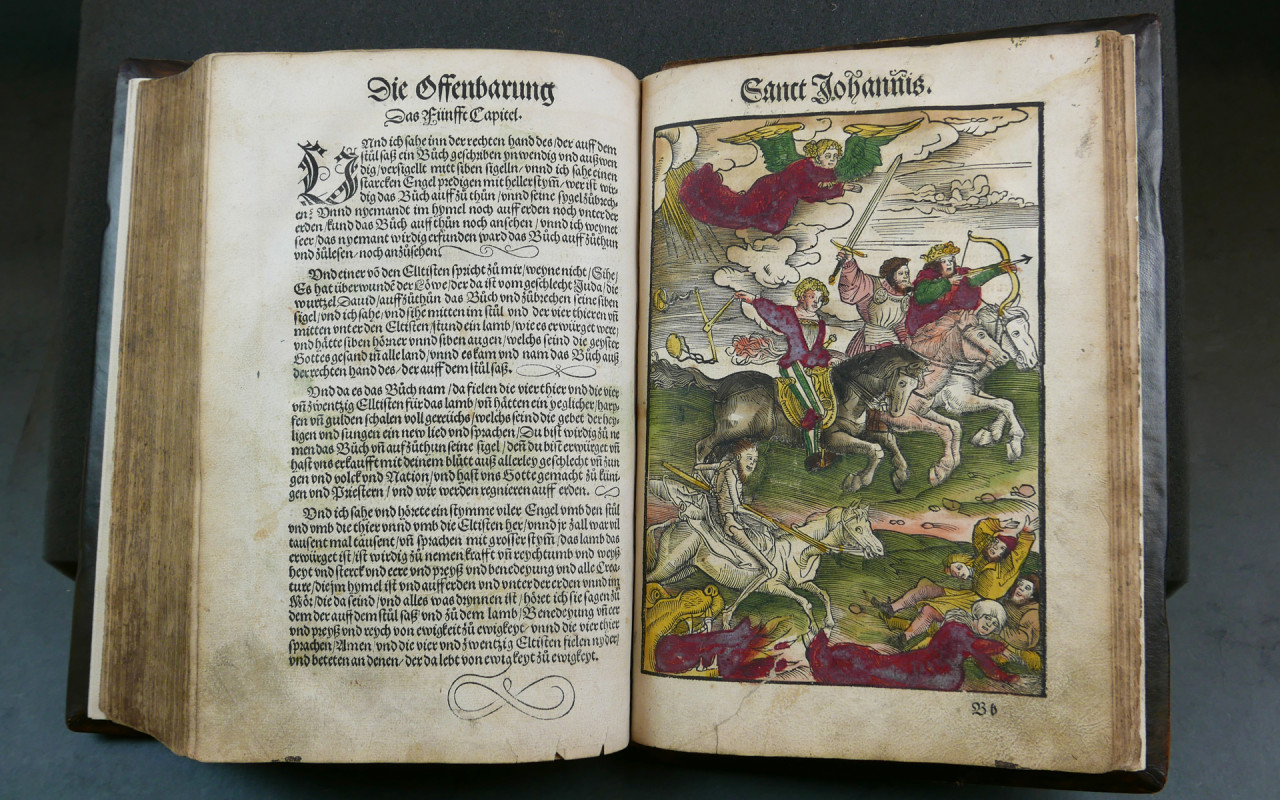 Die Offenbarung
Das Fünfft Capitel.
UNnd ich sahe inn der rechten hand des/der auff dem
stůl saß ein Bůch geschriben ynwendig vnd außwen
dig/versigellt mitt siben sigelln/vnnd ich sahe einen
starcken Engel predigen mit heller stym̃/wer ist wir-
dig das Bůch auff zů thůn/vnnd seine sygel zůbrech-
en? Vnnd nyemandt im hymel noch auff erden noch vnter der
erden/kund das Bůch auff thůn noch ansehen/vnnd ich weynet
seer/das nyemant wirdig erfunden ward das Bůch auff zůthun
vnd zůlesen/noch anzůsehen.
Vnd einer võ den Elltisten spricht zů mir/weyne nicht/Sihe/
Es hat überwundẽ der Löwe/der da ist vom geschlecht Juda/die
wurtzel Dauid/auffzůthůn das Bůch vnd zůbrechen seine siben
sigel/vnd ich sahe/vnd sihe mitten im stůl vnd der vier thieren vñ
mitten vnter den Elltisten/stund ein lamb/wie es erwürget were/
vnd hätte siben hörner vnnd siben augen/welchs seind die geyster
Gottes gesand in alle land/vnnd es kam vnd nam das Bůch auß
der rechten hand des/der auff dem stůl saß.
Vnd da es das Bůch nam/da fielen die vier thier vnd die vier
vñ zwentzig Elltisten für das lamb/vñ hätten ein yeglicher/harp-
fen vñ gulden schalen voll gereuchs/welchs seind die gebet der hey-
ligen vnd sungen ein new lied vnd sprachen/Du bist wirdig zů ne
men das Bůch vñ auffzůthun seine sigel/deñ du bist erwürget vñ
hast vns erkaufft mit deinem blůtt auß allerley geschlecht vñ zun
gen vnd volck vnd Nation/vnd hast vns Gotte gemacht zů küni-
gen vnd Priestern/vnd wir werden regnieren auff erden.
Vnd ich sahe vnd hörete ein stymme viler Engel vmb den stůl
vnd vmb die thier vnnd vmb die Elltisten her/vnnd jr zall war vil
tausent mal tausent/vñ sprachen mit grosser stym̃/das lamb das
erwürget ist/ist wirdig zů nemen krafft vñ reychtumb vnd weyß
heyt vnd sterck vnd eere vnd preyß vnd benedeyung vnd alle Crea-
ture/die im hymel ist vnd auff erden vnd vnter der erden vnnd im
Mör/die da seind/vnd alles was drynnen ist/höret ich sie sagen zů
dem der auff dem stůl saß vnd zů dem lamb/Benedeyung vñ eer
vnd preyß vnd reych von ewigkeit zů ewigkeyt/vnnd die vier thier
sprachen/Amen/vnd die vier vnd zwentzig Elltisten fielen nyder/
vnd beteten an denen/der da lebt von ewigkeyt zů ewigkeyt.
Sanct Johannis.
B 6